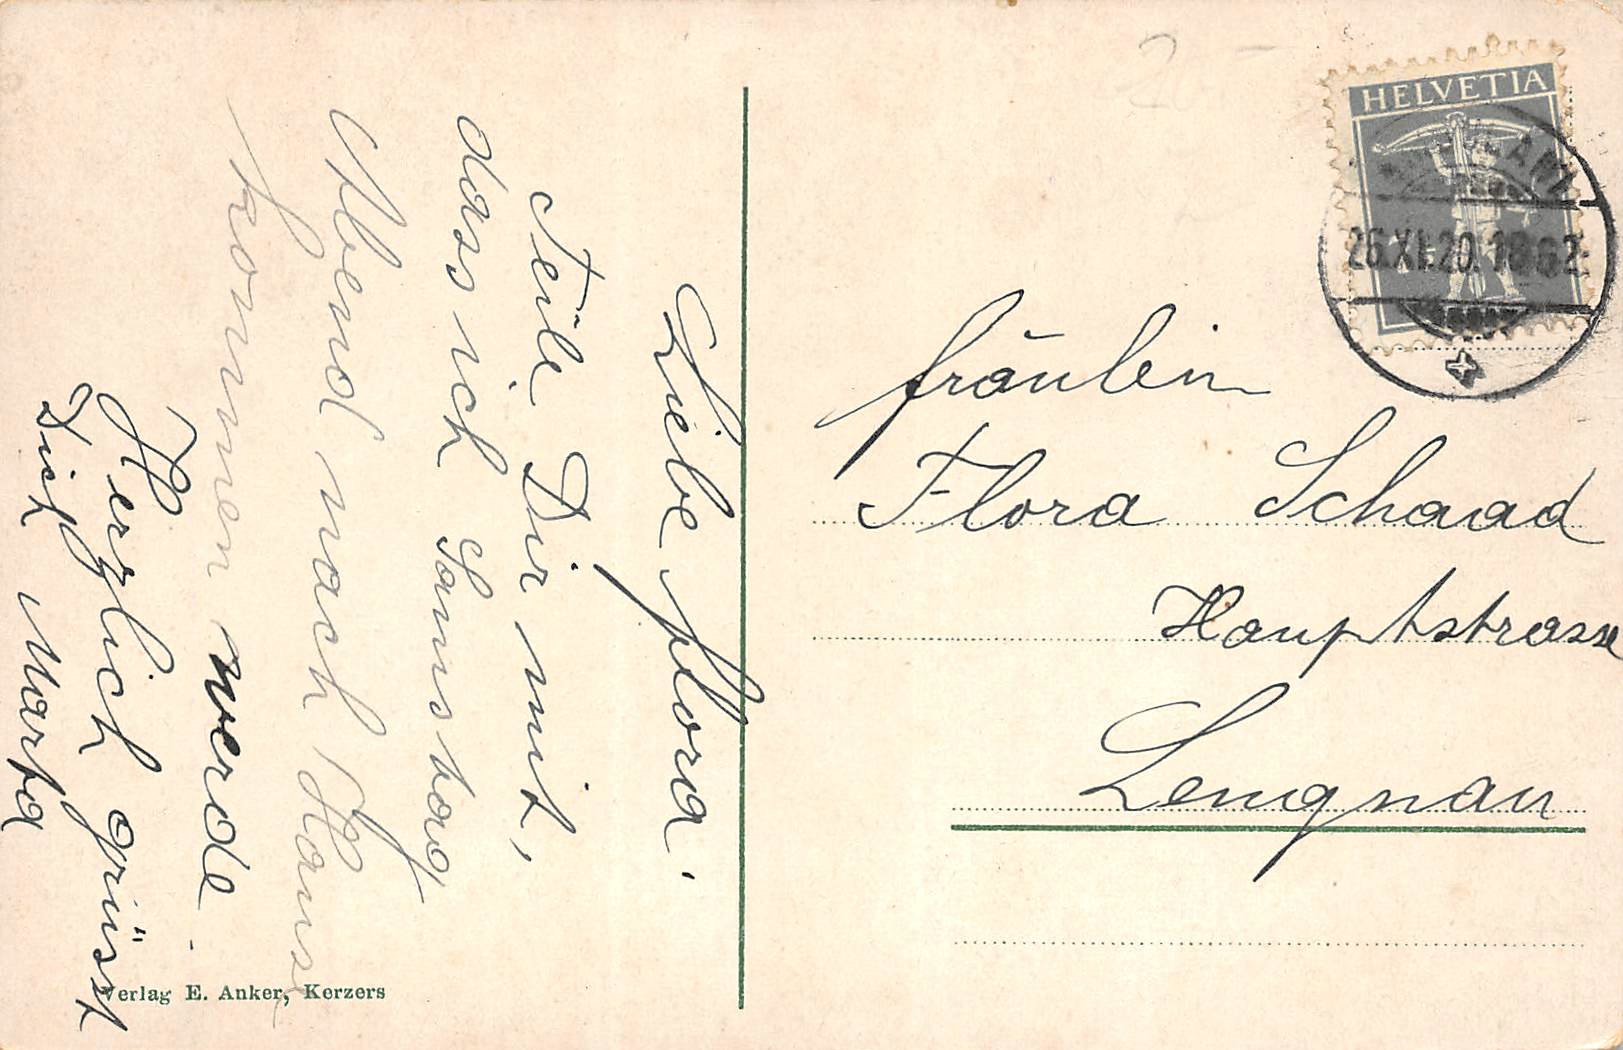 Liebe Flora.
Teile Dir mit,
dass ich Samstag
Abend nach Hause
kommen werde.
Herzlich grüsst
Dich Marta
Verlag E. Anker, Kerzers
HELVETIA
26.XI.20.
Fräulein
Flora Schaad
Hauptstrasse
Lengnau
20.-